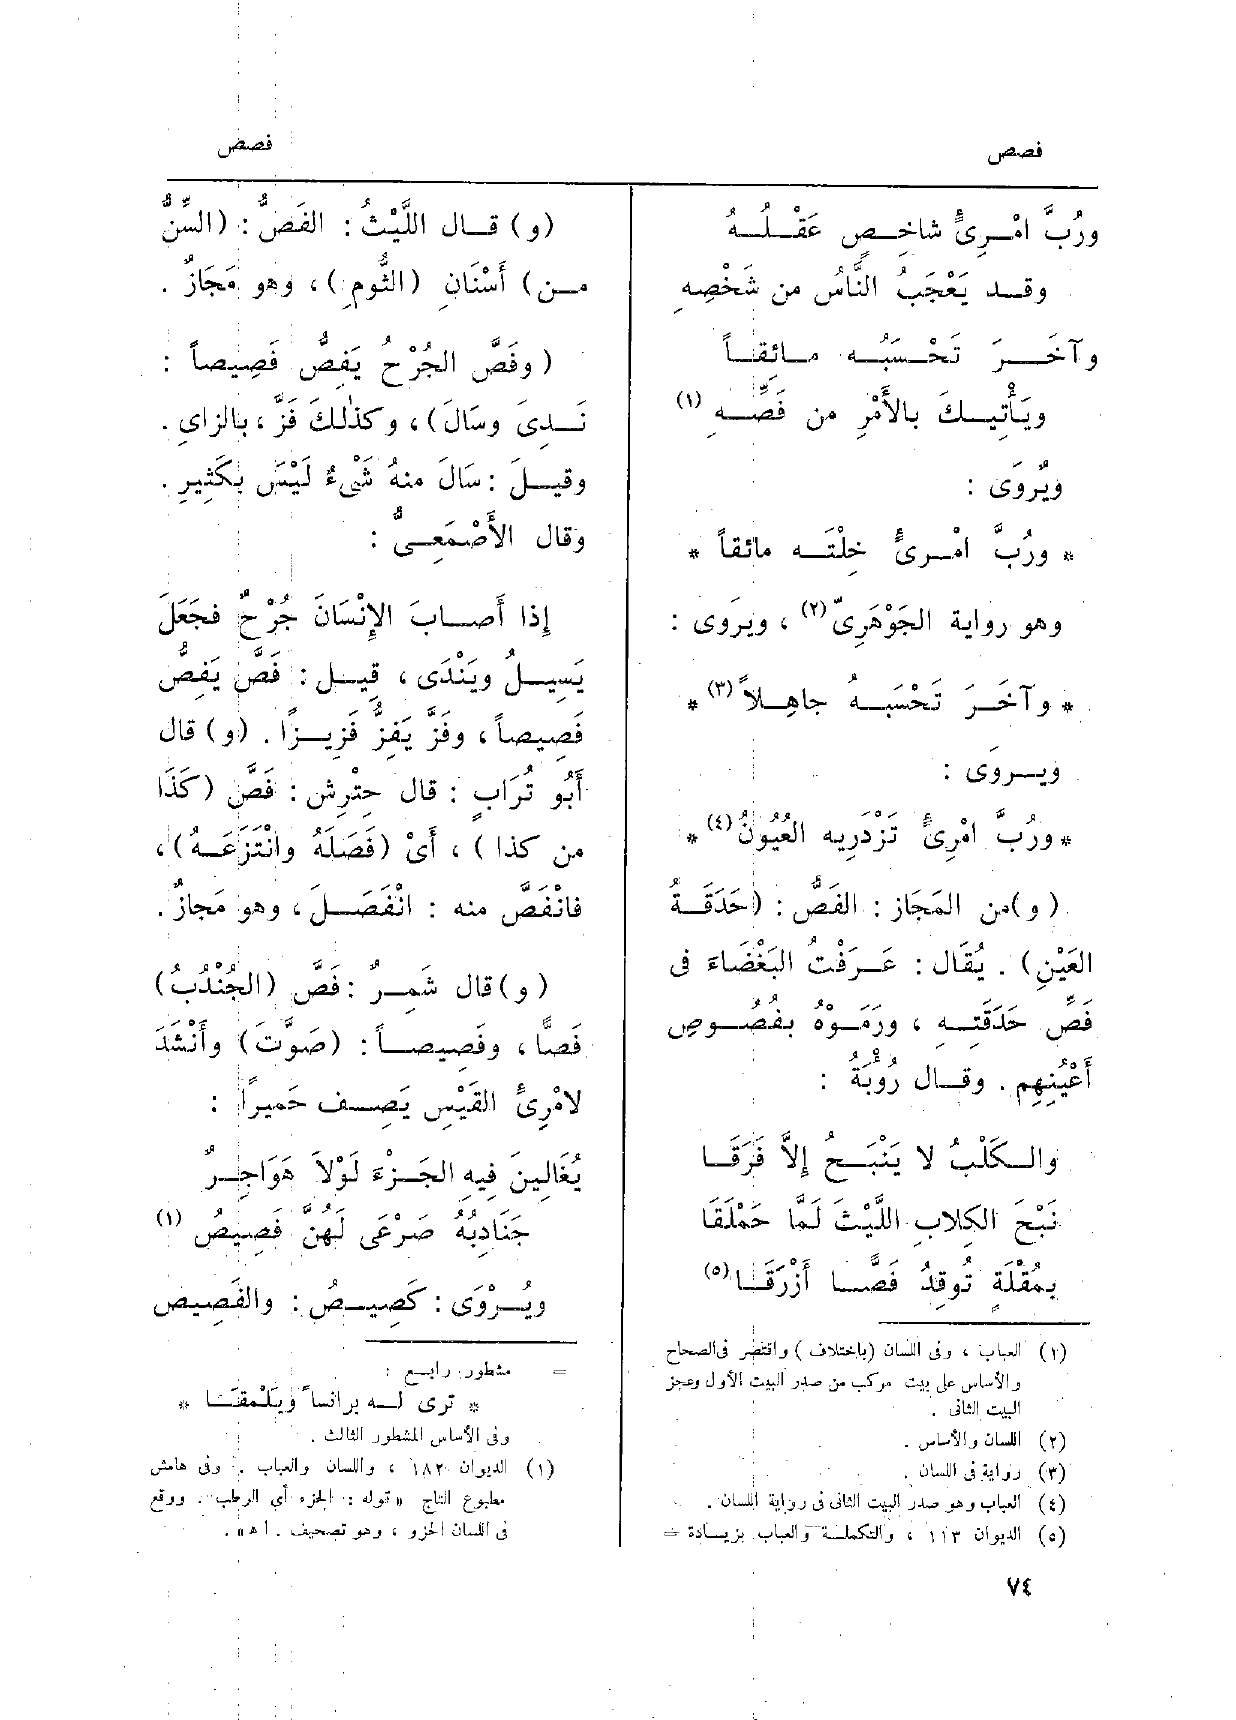 فصص
فصص
ورُبَّ امْرِئٍ شاخِصٍ عَقْلُهُ
وقد يَعْجَبُ النَّاسُ من شَخْصِهِ
وآخَرَ تَحْسَبُه مائقاً
ويَأْتِيكَ بالأَمْرِ من فَصِّهِ (١)
ويُرْوَى :
* ورُبَّ امْرِئٍ خِلْتَه مائقاً *
وهو رواية الجَوْهَرِىّ (٢) ، ويرَوى :
* وآخَرَ تَحْسَبُه جاهِلاً (٣) *
ويروَى :
* ورُبَّ امْرِئٍ تَزْدَرِيه العُيُونُ (٤) *
( و ) من المَجَاز : الفَصُّ : (حَدَقَةُ
العَيْنِ) . يُقَال : عَرَفْتُ البَغْضَاءَ فى
فَصِّ حَدَقَتِه ، ورَمَوْهُ بفُصُوصِ
أَعْيُنِهِم . وقال رُؤْبَةُ :
والكَلْبُ لا يَنْبَحُ إِلاَّ فَرَقَا
نَبْحَ الكِلابِ اللَّيْثَ لَمَّا حَمْلَقَا
بمُقْلَةٍ تُوقِدُ فَصًّا أَزْرَقَا (٥)
(١) العباب ، وفى اللسان (باختلاف ) واقتصر فى الصحاح
والأساس على بيت مركب من صدر البيت الأول وعجز
البيت الثانى .
(٢) اللسان والأساس .
(٣) رواية فى اللسان .
(٤) العباب وهو صدر البيت الثانى فى رواية اللسان .
(٥) الديوان ١١٣ ، والتكملة والعباب بزيادة =
( و ) قال اللَّيْثُ : الفَصُّ : (السِّنُّ
من) أَسْنَانِ (الثُّومِ) ، وهو مَجَازٌ .
( وفَصَّ الجُرْحُ يَفِصُّ فَصِيصاً :
نَدِىَ وسَالَ) ، وكذٰلكَ فَزَّ ، بالزاى .
وقيلَ : سَالَ منهُ شَىْءٌ لَيْسَ بكَثِيرٍ .
وقال الأَصْمَعِىُّ :
إِذا أَصابَ الإِنْسَانَ جُرْحٌ فجَعَلَ
يَسِيلُ ويَنْدَى ، قِيل : فَصَّ يَفِصُّ
فَصِيصاً ، وفَزَّ يَفِزُّ فَزِيزًا . (و) قال
أَبُو تُرَابٍ : قال حِتْرِش : فَصَّ (كَذَا
من كذا ) ، أَىْ (فَصَلَهُ وانْتَزَعَهُ) ،
فانْفَصَّ منه : انْفَصَلَ ، وهو مَجازٌ .
( و ) قال شَمِرٌ : فَصَّ (الجُنْدُبُ)
فَصًّا ، وفَصِيصاً : (صَوَّتَ) وأَنْشَدَ
لامْرِئِ القَيْسِ يَصِف حَمِيراً :
يُغَالِينَ فِيهِ الجَزْءَ لَوْلاَ هَوَاجِرٌ
جَنَادِبُهُ صَرْعَى لَهُنَّ فَصِيصُ (١)
ويُرْوَى : كَصِيصُ : والفَصِيص
= مشطور رابع :
* ترى له برانساً ويَلْمَقَا *
وفى الأساس المشطور الثالث .
(١) الديوان ١٨٢ ، واللسان والعباب . وفى هامش
مطبوع التاج « قوله : الجزء أي الرطب . ووقع
فى اللسان الخزو ، وهو تصحيف . ا ه » .
٧٤